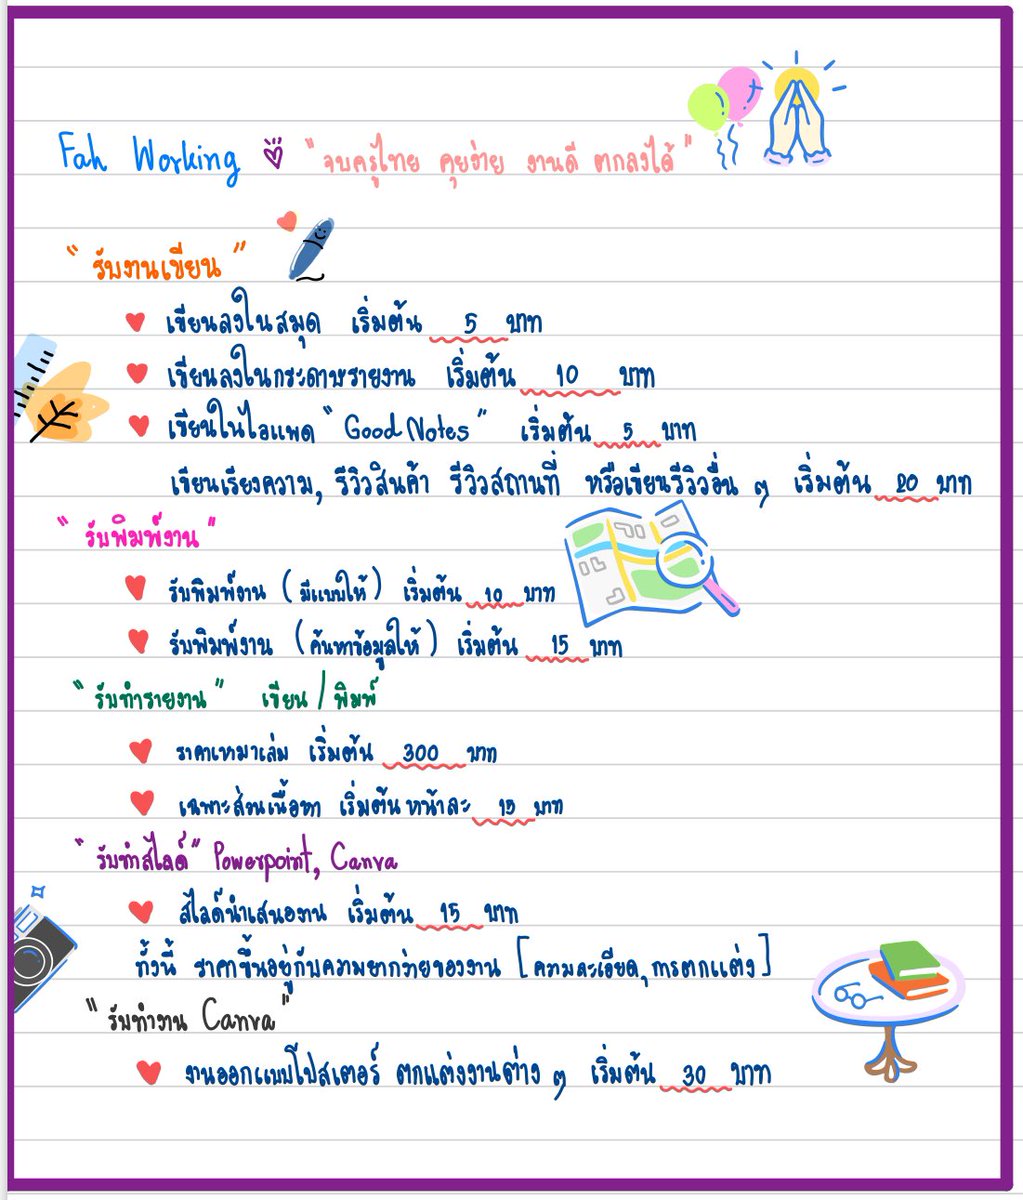 Fah Working "จบครูไทย คุยง่าย งานดี ตกลงได้"
"รับงานเขียน"
เขียนลงในสมุด เริ่มต้น 5 บาท
เขียนลงในกระดาษรายงาน เริ่มต้น 10 บาท
เขียนในไอแพด "Good Notes" เริ่มต้น 5 บาท
เขียนเรียงความ, รีวิวสินค้า รีวิวสถานที่ หรือเขียนรีวิวอื่น ๆ เริ่มต้น 20 บาท
"รับพิมพ์งาน"
รับพิมพ์งาน (มีแบบให้) เริ่มต้น 10 บาท
รับพิมพ์งาน (ค้นหาข้อมูลให้) เริ่มต้น 15 บาท
"รับทำรายงาน" เขียน / พิมพ์
ราคาเหมาเล่ม เริ่มต้น 300 บาท
เฉพาะส่วนเนื้อหา เริ่มต้นหน้าละ 15 บาท
"รับทำสไลด์" Powerpoint, Canva
สไลด์นำเสนองาน เริ่มต้น 15 บาท
ทั้งนี้ ราคาขึ้นอยู่กับความยากง่ายของงาน [ความละเอียด, การตกแต่ง]
"รับทำงาน Canva"
งานออกแบบโปสเตอร์ ตกแต่งงานต่าง ๆ เริ่มต้น 30 บาท